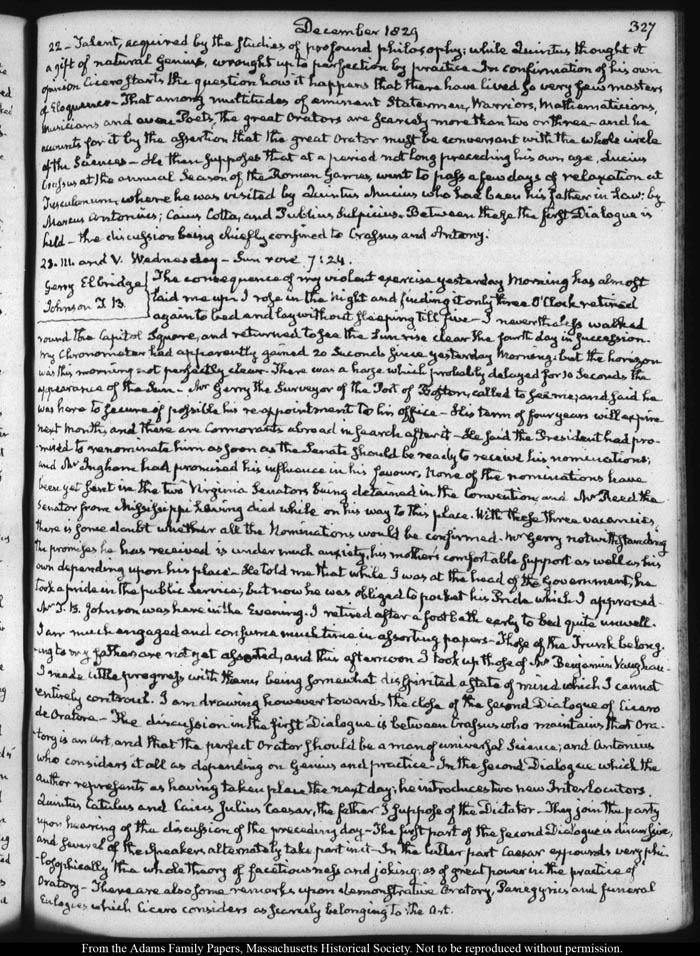 December 1829
327
22 - Talent, acquired by the studies of profound philosophy; while Quintus thought it
a gift of natural Genius, wrought up to perfection by practice. In confirmation of his own
opinion Cicero starts the question how it happens that there have lived so very few masters
of Eloquence - That among multitudes of eminent Statesmen, Warriors, Mathematicians,
Musicians and even Poets, the great Orators are scarcely more than two or three - and he
accounts for it by the assertion that the great Orator must be conversant with the whole circle
of the Sciences - He then supposes that at a period not long preceding his own age, Lucius
Crassus at the annual Season of the Roman Games, went to pass a few days of relaxation at
Tusculanum, where he was visited by Quintus Mucius who had been his father in Law: by
Marcus Antonius; Caius Cotta, and Publius Sulpicius. Between these the first Dialogue is
held - the discussion being chiefly confined to Crassus and Antony.
23. III. and V. Wednesday - Sun rose 7:24.
Gerry Elbridge
Johnson T. B.
The consequence of my violent exercise yesterday Morning has almost
laid me up. I rose in the night and finding it only three O'Clock retired
again to bed and lay without sleeping till five - I nevertheless walked
round the Capitol Square, and returned to see the Sun rise clear the fourth day in succession.
My Chronometer had apparently gained 20 Seconds since yesterday Morning: but the horizon
was this morning not perfectly clear. There was a haze which probably delayed for 10 Seconds the
appearance of the Sun - Mr Gerry the Surveyor of the Port of Boston, called to see me; and said he
was here to secure if possible his re-appointment to his office - His term of four years will expire
next Month, and there are Cormorants abroad in search after it - He said the President had pro-
mised to renominate him as soon as the Senate should be ready to receive his nominations;
and Mr Ingham had promised his influence in his favour. None of the nominations have
been yet sent in the two Virginia Senators being detained in the Convention, and Mr Reed the
Senator from Mississippi having died while on his way to this place. With these three vacancies,
there is some doubt whether all the Nominations would be confirmed. Mr Gerry notwithstanding
the promises he has received is under much anxiety, his mother's comfortable support as well as his
own depending upon his place. He told me that while I was at the head of the Government, he
took a pride in the public Service; but now he was obliged to pocket his Pride which I approved.
Mr T. B. Johnson was here in the Evening. I retired after a foot bath early to bed quite unwell.
I am much engaged and consume much time in assorting papers - Those of the Trunk belong-
ing to my father are not yet assorted, and this afternoon I took up those of Mr Benjamin Vaughan -
I made little progress with them being somewhat dispirited a state of mind which I cannot
entirely controul. I am drawing however towards the close of the second Dialogue of Cicero
de Oratore - The discussion in the first Dialogue is between Crassus who maintains that Ora-
tory is an Art, and that the perfect Orator should be a man of universal Science; and Antonius
who considers it all as depending on Genius and practice. In the second Dialogue which the
author represents as having taken place the next day; he introduces two new Interlocutors,
Quintus Catulus and Caius Julius Caesar, the father I suppose of the Dictator - They join the party
upon hearing of the discussion of the preceding day - The first part of the second Dialogue is discursive,
and several of the speakers alternately take part in it - In the latter part Caesar expounds very phi-
losophically the whole theory of facetiousness and joking, as of great power in the practice of
Oratory - There are also some remarks upon demonstrative Oratory, Panegyrics and funeral
Eulogies which Cicero considers as scarcely belonging to the Art.
From the Adams Family Papers, Massachusetts Historical Society. Not to be reproduced without permission.